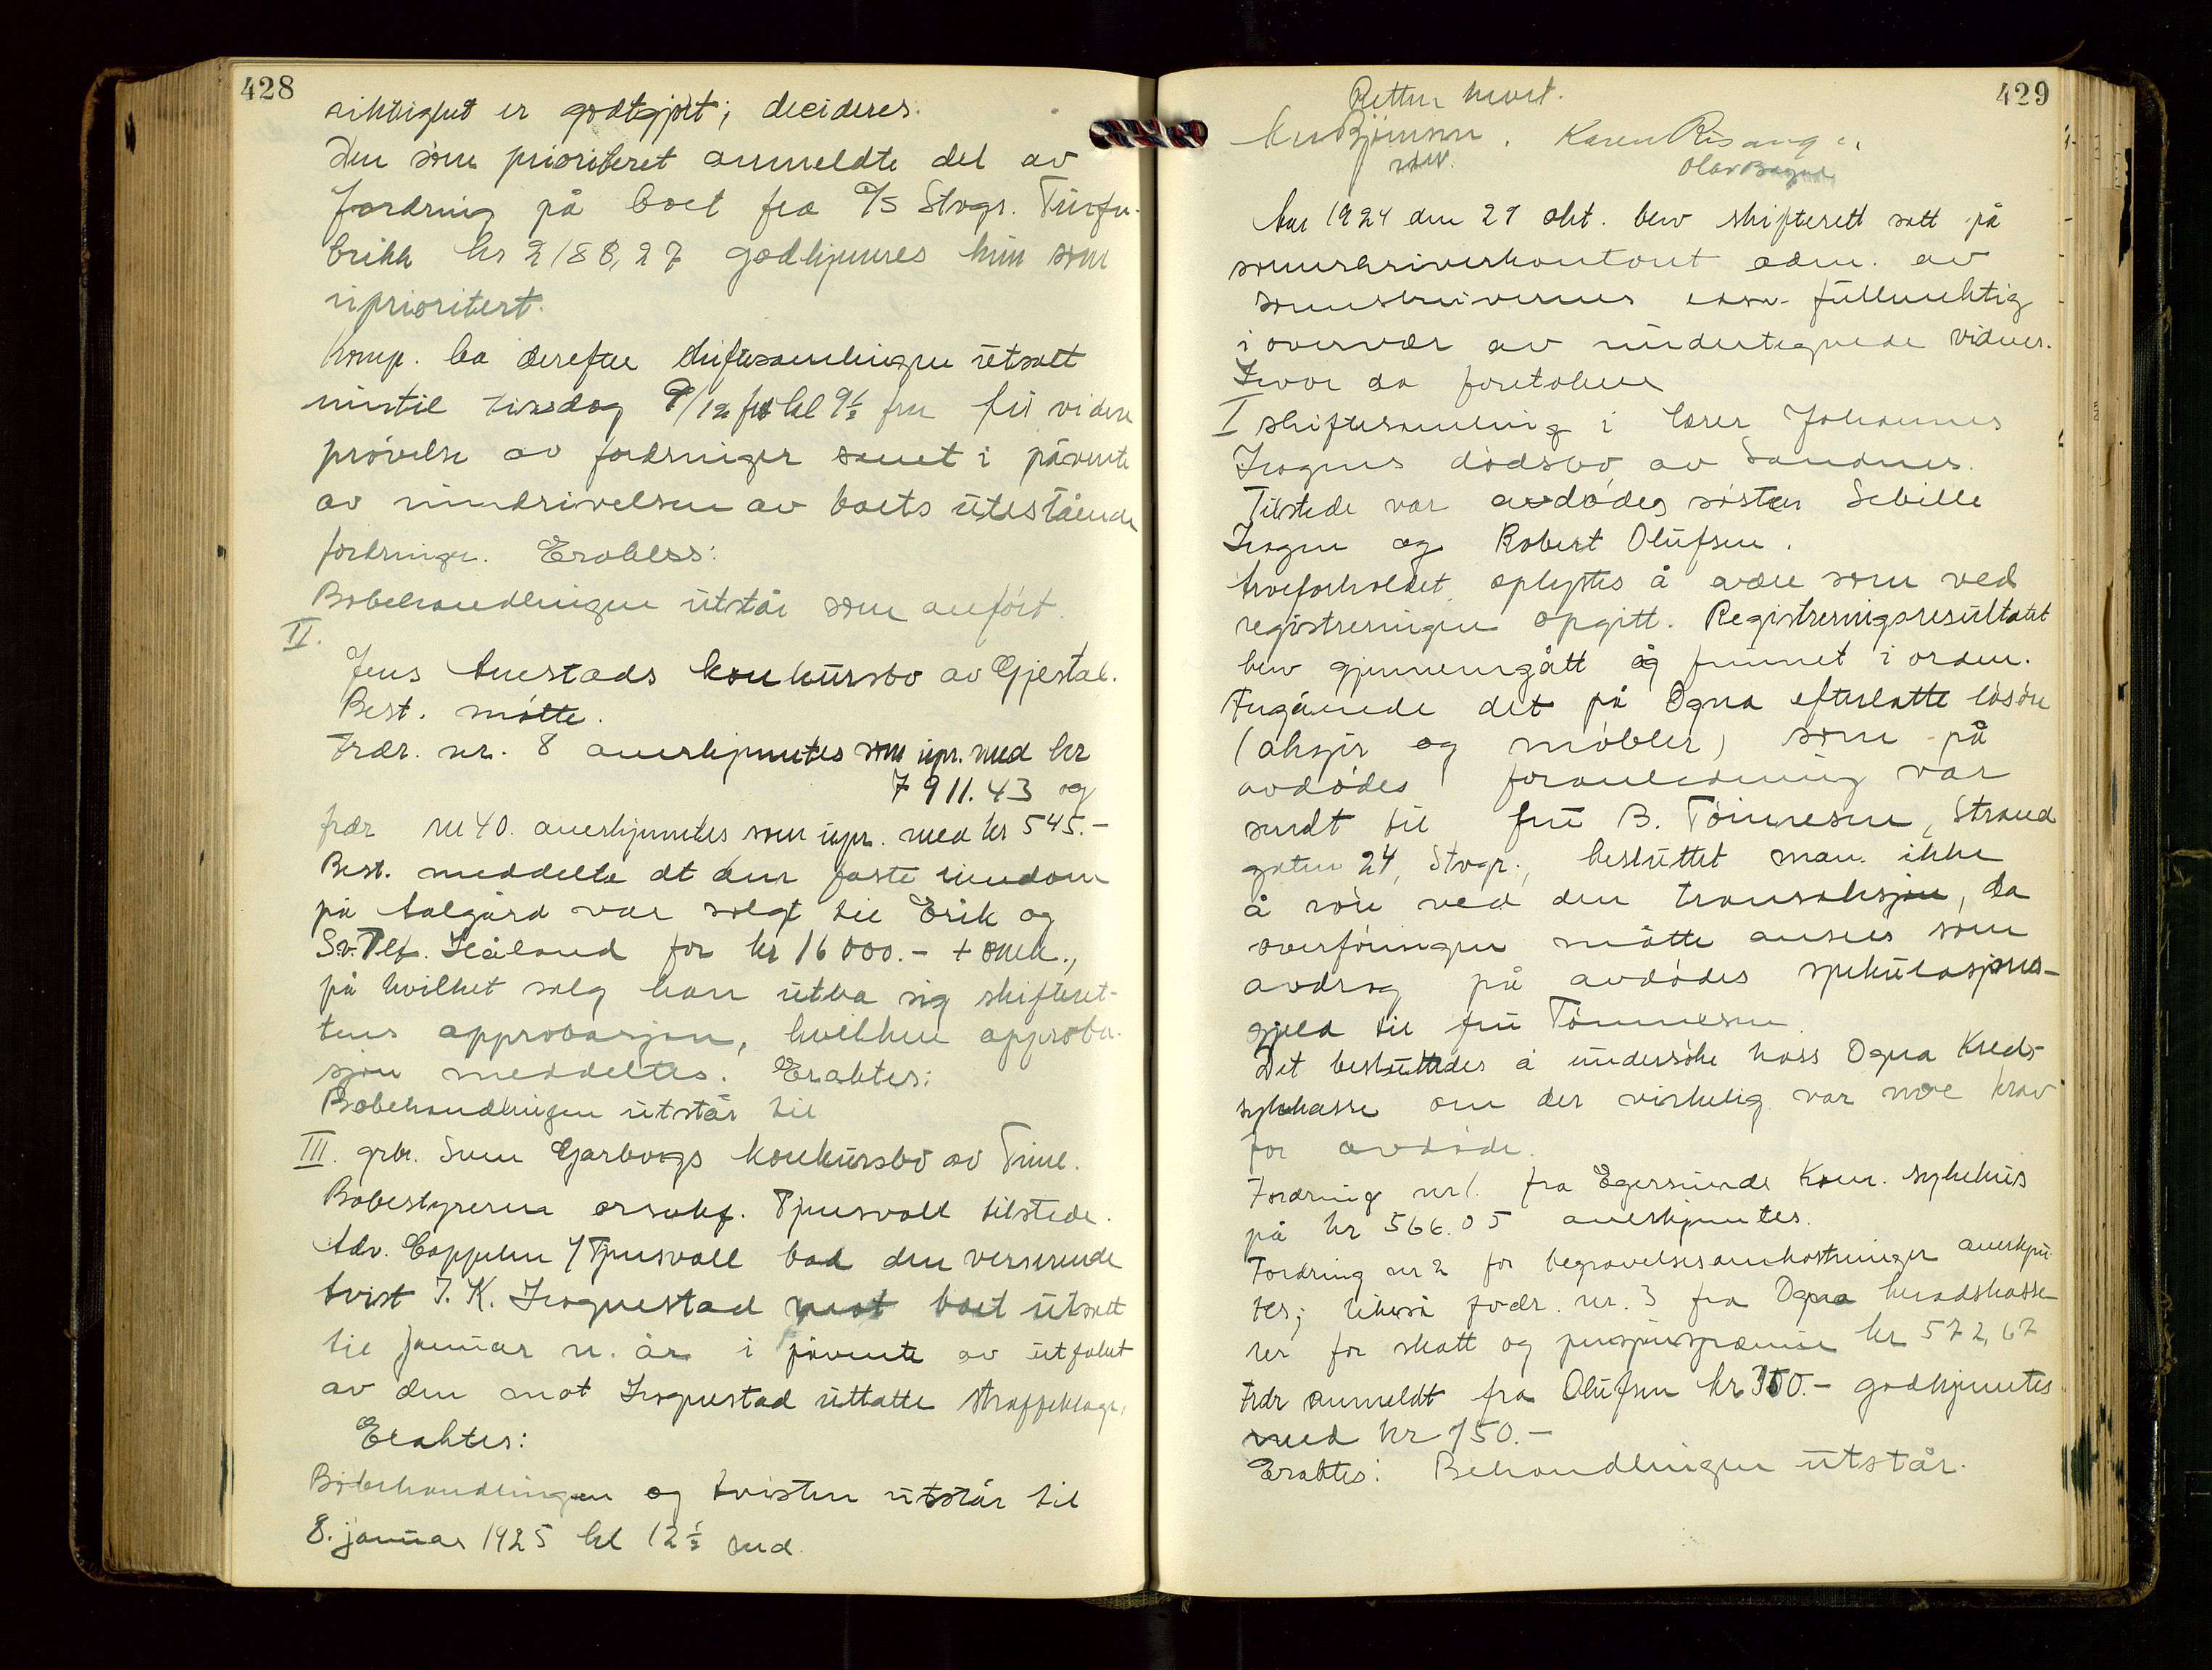 428
riktighet er godtgjort; decideres.
Den som prioriteret anmeldte del av
fordring på boet fra A/S Stvgr. Turfa-
brikk kr 2188,27 godkjennes kun som
uprioritert.
Komp. ba derefter skiftesamlingen utsatt
inntil tirsdag 9/12 kl 9½ fm for videre
prøvelse av fordringer samt i påvente
av inndrivelsen av boets utestående
fordringer. Eragtess:
Bobehandlingen utstår som anført.
II.
Jens Auestads konkursbo av Gjestal.
Best. møtte.
Fordr. nr. 8 anerkjentes som upr. med kr
7911.43 og
fordr nr 40. anerkjentes som upr. med kr 545.-
Best. meddelte at den faste eiendom
på Aalgård var solgt til Erik og
Sv. Håland for kr 16000.- + omk.,
på hvilket salg han utba sig skifteret-
tens approbasjon, hvilken approba-
sjon meddeltes. Eraktes:
Bobehandlingen utstår til
III. grbr. Sven Garborgs konkursbo av Time.
Bobestyreren orsakf. Tjensvoll tilstede.
Adv. Cappelen / Tjensvoll bad den verserende
tvist T. K. Hognestad mot boet utsatt
til januar n. år i påvente av utfallet
av den mot Hognestad uttatte straffeklage.
Eraktes:
Bobehandlingen og tvisten utstår til
8. januar 1925 kl 12½ md.
429
Retten hevet.
Bjørnsen. Karen Risanger.
Olav
Aar 1924 den 29 okt. blev skifterett satt på
sorenskriverkontoret adm. av
sorenskriverens edsv. fullmektig
i overvær av undertegnede vidner.
Hvor da foretokes
I skiftesamling i lærer Johannes
Hognes dødsbo av Sandnes.
Tilstede var avdødes søster Sebille
Hogne og Robert Olufsen.
Arveforholdet oplystes å være som ved
registreringen opgitt. Registreringsresultatet
blev gjennemgått og funnet i orden.
Angående det på Ogna efterlatte løsøre
(aksjer og møbler) som på
avdødes foranledning var
sendt til fru B. Tønnesen, Strand
gaten 24, Stvgr., besluttet man ikke
å røre ved den transaksjon, da
overføringen måtte ansees som
avdrag på avdødes spekulasjons-
gjeld til fru Tønnesen.
Det besluttedes å undersøke hoss Ogna Kreds-
sykekasse om der virkelig var noe krav
for avdøde.
Fordring nr 1. fra Egersunds Kom. sykehus
på kr 566.05 anerkjentes.
Fordring nr 2 for begravelsesomkostninger anerkjen-
tes; likeså fordr. nr. 3 fra Ogna heradskasse-
rer for skatt og pensjonspremie kr 572,67
Fordr anmeldt fra Olufsen kr 350.- godkjentes
med kr 150.-
Eraktes: Behandlingen utstår.